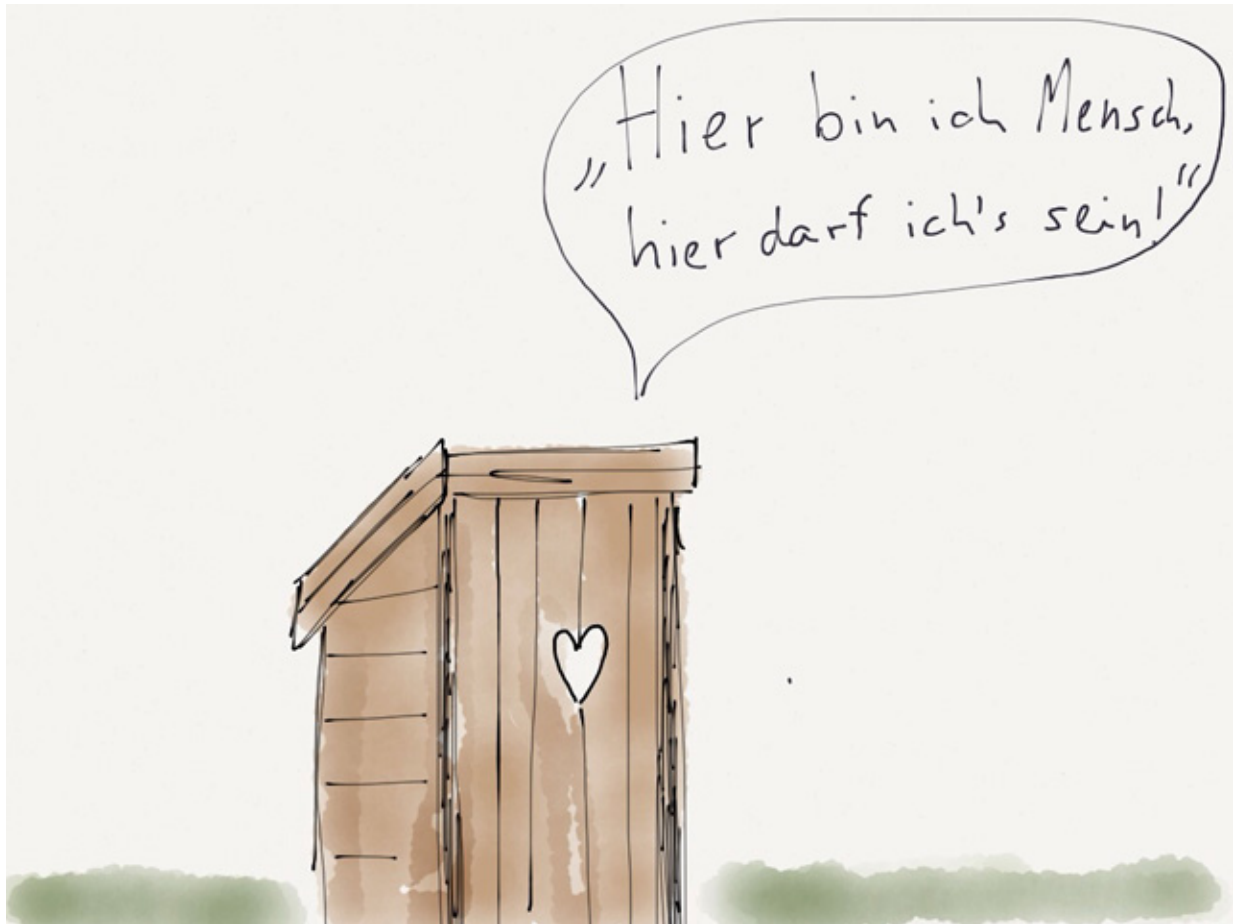 „Hier bin ich Mensch,
hier darf ich's sein!"